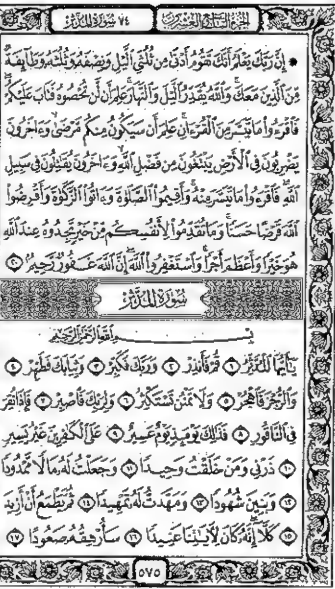 الجزء التاسع والعشرون ٧٤ سورة المدثر
۞ إِنَّ رَبَّكَ يَعْلَمُ أَنَّكَ تَقُومُ أَدْنَىٰ مِن ثُلُثَيِ ٱلَّيْلِ وَنِصْفَهُۥ وَثُلُثَهُۥ وَطَآئِفَةٌ
مِّنَ ٱلَّذِينَ مَعَكَۚ وَٱللَّهُ يُقَدِّرُ ٱلَّيْلَ وَٱلنَّهَارَۚ عَلِمَ أَن لَّن تُحْصُوهُ فَتَابَ عَلَيْكُمْۖ
فَٱقْرَءُوا۟ مَا تَيَسَّرَ مِنَ ٱلْقُرْءَانِۚ عَلِمَ أَن سَيَكُونُ مِنكُم مَّرْضَىٰۙ وَءَاخَرُونَ
يَضْرِبُونَ فِى ٱلْأَرْضِ يَبْتَغُونَ مِن فَضْلِ ٱللَّهِۙ وَءَاخَرُونَ يُقَٰتِلُونَ فِى سَبِيلِ
ٱللَّهِۖ فَٱقْرَءُوا۟ مَا تَيَسَّرَ مِنْهُۚ وَأَقِيمُوا۟ ٱلصَّلَوٰةَ وَءَاتُوا۟ ٱلزَّكَوٰةَ وَأَقْرِضُوا۟
ٱللَّهَ قَرْضًا حَسَنًاۚ وَمَا تُقَدِّمُوا۟ لِأَنفُسِكُم مِّنْ خَيْرٍ تَجِدُوهُ عِندَ ٱللَّهِ
هُوَ خَيْرًا وَأَعْظَمَ أَجْرًاۚ وَٱسْتَغْفِرُوا۟ ٱللَّهَۖ إِنَّ ٱللَّهَ غَفُورٌ رَّحِيمٌۢ ٢٠
سورة المدثر
بِسْمِ ٱللَّهِ ٱلرَّحْمَٰنِ ٱلرَّحِيمِ
يَٰٓأَيُّهَا ٱلْمُدَّثِّرُ ١ قُمْ فَأَنذِرْ ٢ وَرَبَّكَ فَكَبِّرْ ٣ وَثِيَابَكَ فَطَهِّرْ ٤
وَٱلرُّجْزَ فَٱهْجُرْ ٥ وَلَا تَمْنُن تَسْتَكْثِرُ ٦ وَلِرَبِّكَ فَٱصْبِرْ ٧ فَإِذَا نُقِرَ
فِى ٱلنَّاقُورِ ٨ فَذَٰلِكَ يَوْمَئِذٍ يَوْمٌ عَسِيرٌ ٩ عَلَى ٱلْكَٰفِرِينَ غَيْرُ يَسِيرٍ
١٠ ذَرْنِى وَمَنْ خَلَقْتُ وَحِيدًا ١١ وَجَعَلْتُ لَهُۥ مَالًا مَّمْدُودًا
١٢ وَبَنِينَ شُهُودًا ١٣ وَمَهَّدتُّ لَهُۥ تَمْهِيدًا ١٤ ثُمَّ يَطْمَعُ أَنْ أَزِيدَ
١٥ كَلَّآۖ إِنَّهُۥ كَانَ لِءَايَٰتِنَا عَنِيدًا ١٦ سَأُرْهِقُهُۥ صَعُودًا ١٧
٥٧٥